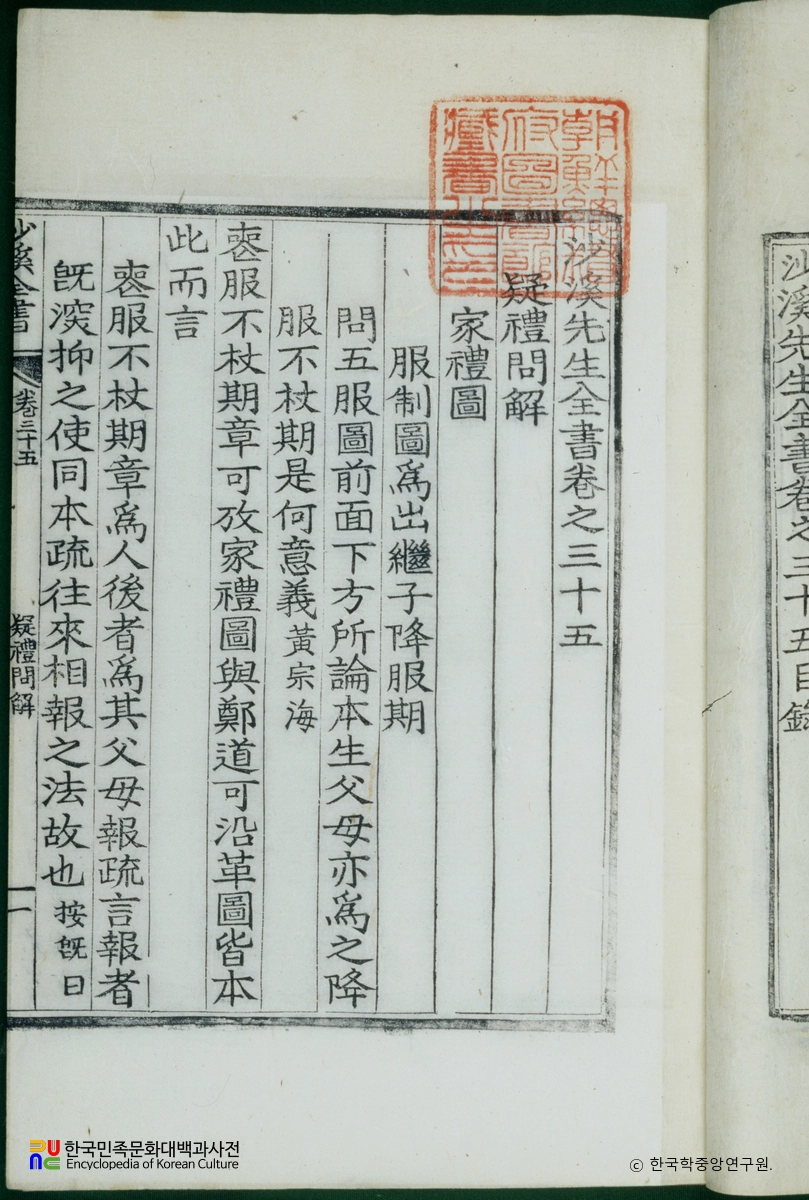 沙溪先生全書卷之三十五目錄
沙溪先生全書卷之三十五
疑禮問解
家禮圖
服制圖爲出繼子降服期
問五服圖前面下方所論本生父母亦爲之降
服不杖期是何意義黃宗海
喪服不杖期章可攷家禮圖與鄭道可沿革圖皆本
此而言
喪服不杖期章爲人後者爲其父母報疏言報者
旣深抑之使同本疏往來相報之法故也按旣曰
沙溪全書
卷三十五
疑禮問解
一
朝鮮總督
府圖書館
藏書之印
한국민족문화대백과사전
Encyclopedia of Korean Culture
© 한국학중앙연구원.